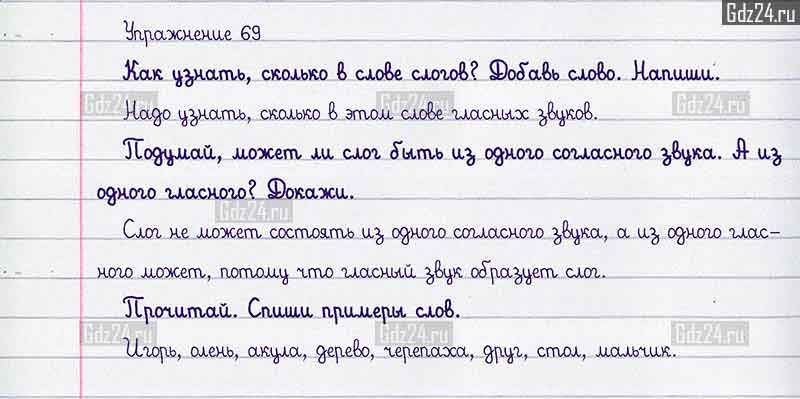 Gdz24.ru
Упражнение 69
Как узнать, сколько в слове слогов? Добавь слово. Напиши.
Gdz24.ru Gdz24.ru Gdz24.ru
Надо узнать, сколько в этом слове гласных звуков.
Подумай, может ли слог быть из одного согласного звука. А из
одного гласного? Докажи.
Gdz24.ru
Слог не может состоять из одного согласного звука, а из одного глас-
ного может, потому что гласный звук образует слог.
Прочитай. Спиши примеры слов.
Gdz24.ru Gdz24.ru Gdz24.ru
Игорь, олень, акула, дерево, черепаха, друг, стол, мальчик.